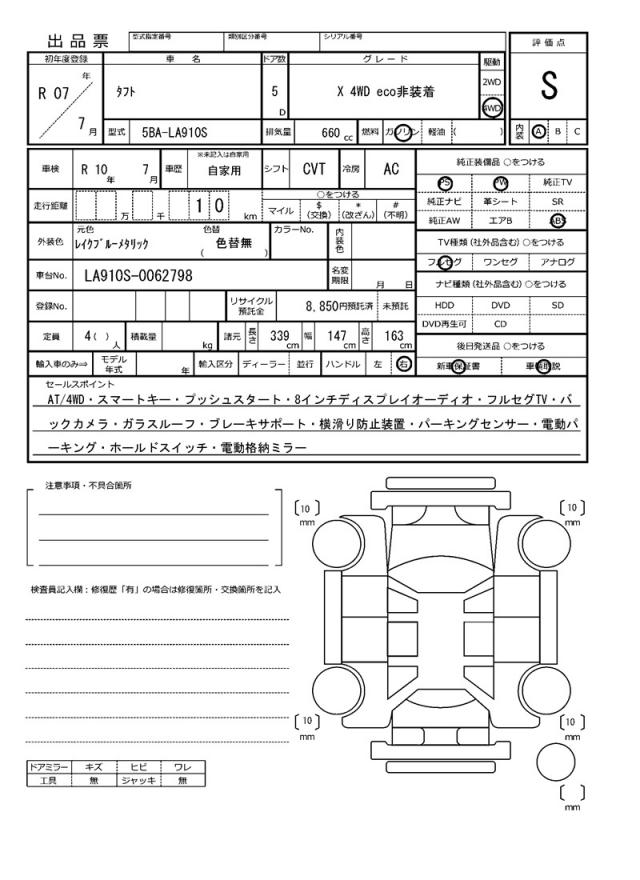 出品票
型式指定番号 類別区分番号 シリアル番号
評価点
S
内装 A B C
初年度登録 車名 ドア数 グレード 駆動
R 07 年 7 月
タフト 5 D X 4WD eco非装着 2WD 4WD
型式 5BA-LA910S 排気量 660 cc 燃料 ガソリン 軽油 ( )
車検 R 10 年 7 月 車歴 ※未記入は自家用 自家用 シフト CVT 冷房 AC
純正装備品 ○をつける
PS PW 純正TV
純正ナビ 革シート SR
純正AW エアB ABS
走行距離 万 千 1 0 km
○をつける
マイル $(交換) *(改ざん) #(不明)
TV種類(社外品含む)○をつける
フルセグ ワンセグ アナログ
外装色 元色 レイクブルーメタリック 色替 ( 色替無 ) カラーNo. 内装色
車台No. LA910S-0062798 名変期限 月 日
ナビ種類(社外品含む)○をつける
HDD DVD SD
DVD再生可 CD
登録No. リサイクル預託金 8,850円預託済 未預託
定員 4( ) 人 積載量 kg 諸元 長さ 339 cm 幅 147 cm 高さ 163 cm
後日発送品 ○をつける
新車保証書 車輌取説
輸入車のみ⇒ モデル年式 年 輸入区分 ディーラー 並行 ハンドル 左 右
セールスポイント
AT/4WD・スマートキー・プッシュスタート・8インチディスプレイオーディオ・フルセグTV・バ
ックカメラ・ガラスルーフ・ブレーキサポート・横滑り防止装置・パーキングセンサー・電動パ
ーキング・ホールドスイッチ・電動格納ミラー
注意事項・不具合箇所
検査員記入欄:修復歴「有」の場合は修復箇所・交換箇所を記入
[10] mm [10] mm
[10] mm [10] mm
[ ] mm
ドアミラー キズ ヒビ ワレ
工具 無 ジャッキ 無